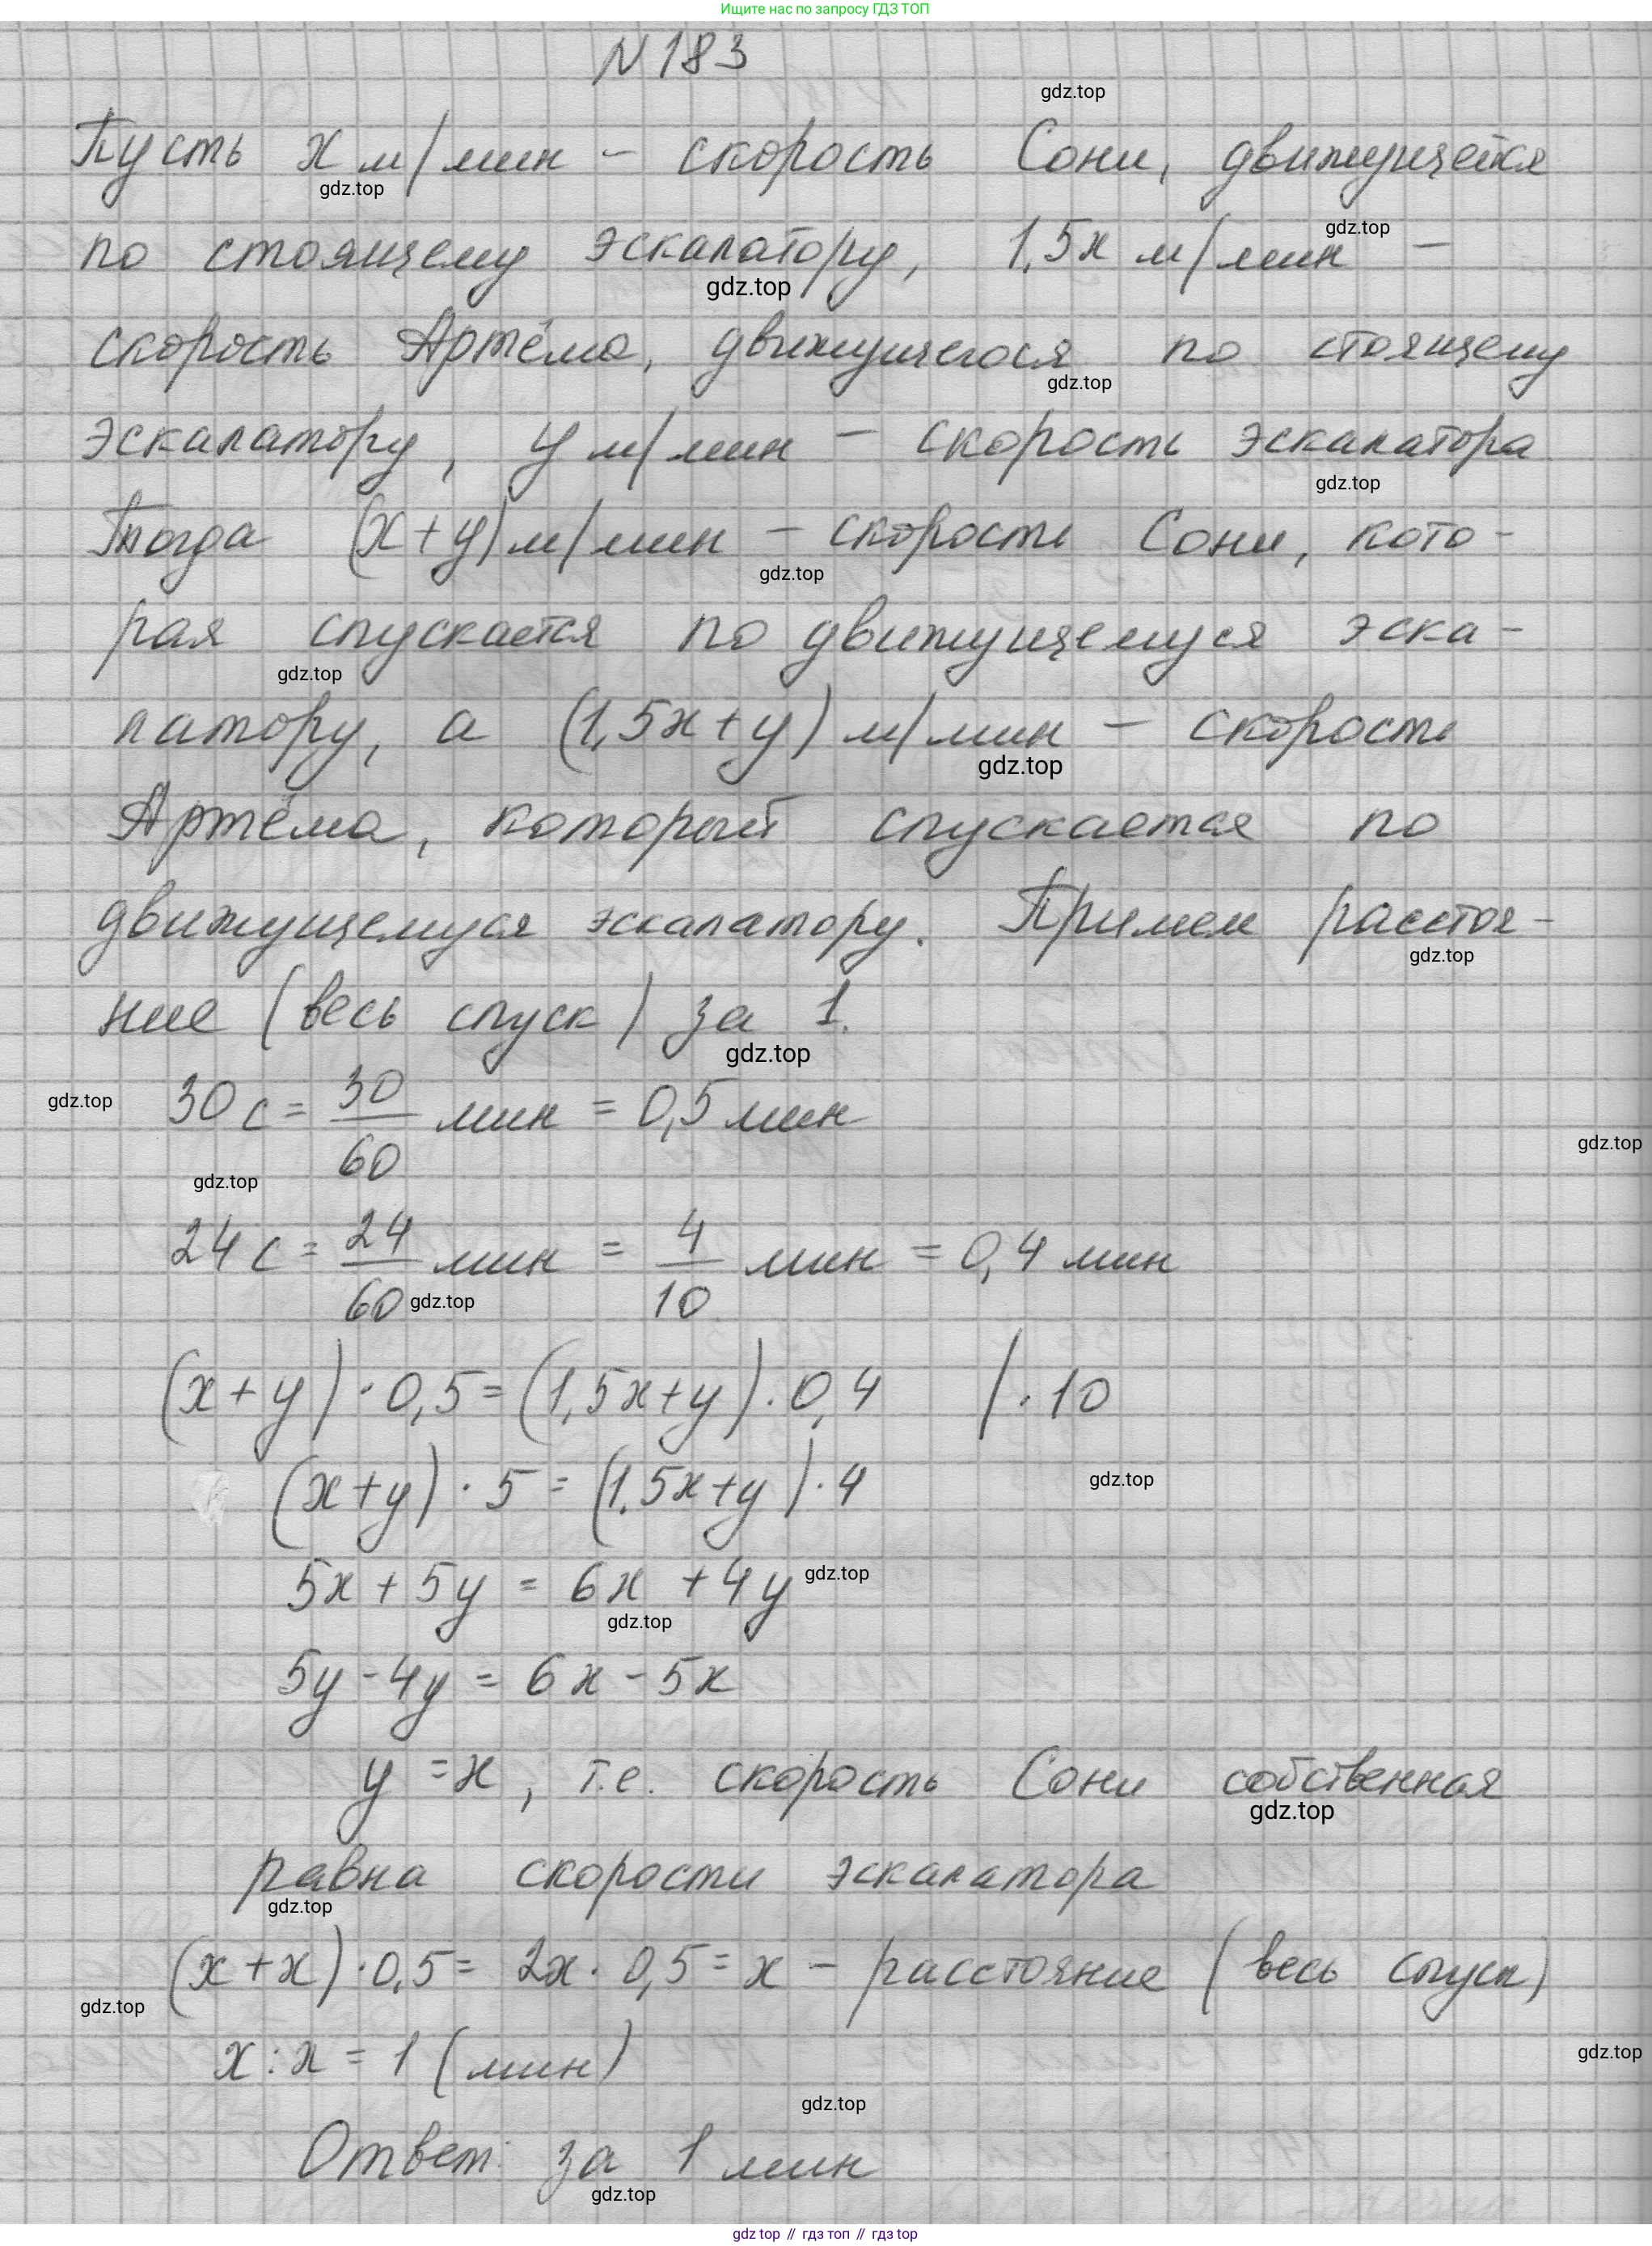 Ищите нас по запросу ГДЗ ТОП
N 183
gdz.top
Пусть x м/мин – скорость Сони, движущейся
gdz.top
gdz.top
по стоящему эскалатору, 1,5x м/мин –
gdz.top
скорость Артёма, движущегося по стоящему
gdz.top
эскалатору, y м/мин – скорость эскалатора
gdz.top
Тогда (x+y) м/мин – скорость Сони, кото-
gdz.top
рая спускается по движущемуся эска-
gdz.top
латору, а (1,5x+y) м/мин – скорость
gdz.top
Артёма, который спускается по
движущемуся эскалатору. Примем расстоя-
gdz.top
ние (весь спуск) за 1.
gdz.top
gdz.top
30 с = 30/60 мин = 0,5 мин
gdz.top
gdz.top
24 с = 24/60 мин = 4/10 мин = 0,4 мин
gdz.top
(x+y)·0,5=(1,5x+y)·0,4 /·10
(x+y)·5=(1,5x+y)·4
gdz.top
5x+5y = 6x +4y
gdz.top
gdz.top
5y-4y = 6x-5x
y=x, т.е. скорость Сони собственная
gdz.top
равна скорости эскалатора
gdz.top
(x+x)·0,5= 2x·0,5=x – расстояние (весь спуск)
gdz.top
x:x=1 (мин)
gdz.top
gdz.top
Ответ: за 1 мин
gdz.top
gdz top // гдз топ // гдз top